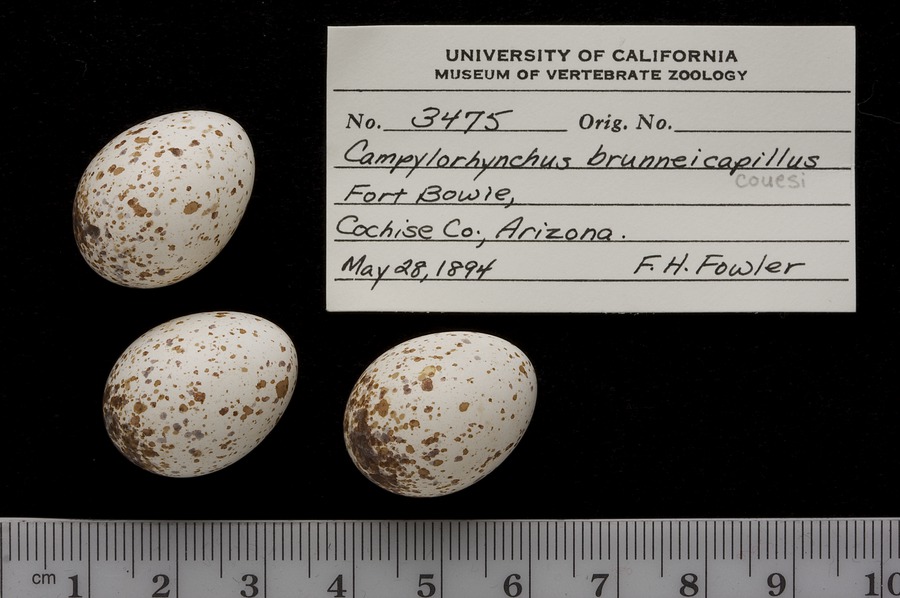 UNIVERSITY OF CALIFORNIA
MUSEUM OF VERTEBRATE ZOOLOGY
No. 3475 Orig. No.
Campylorhynchus brunneicapillus
couesi
Fort Bowie,
Cochise Co., Arizona.
May 28, 1894 F. H. Fowler
cm 1 2 3 4 5 6 7 8 9 10